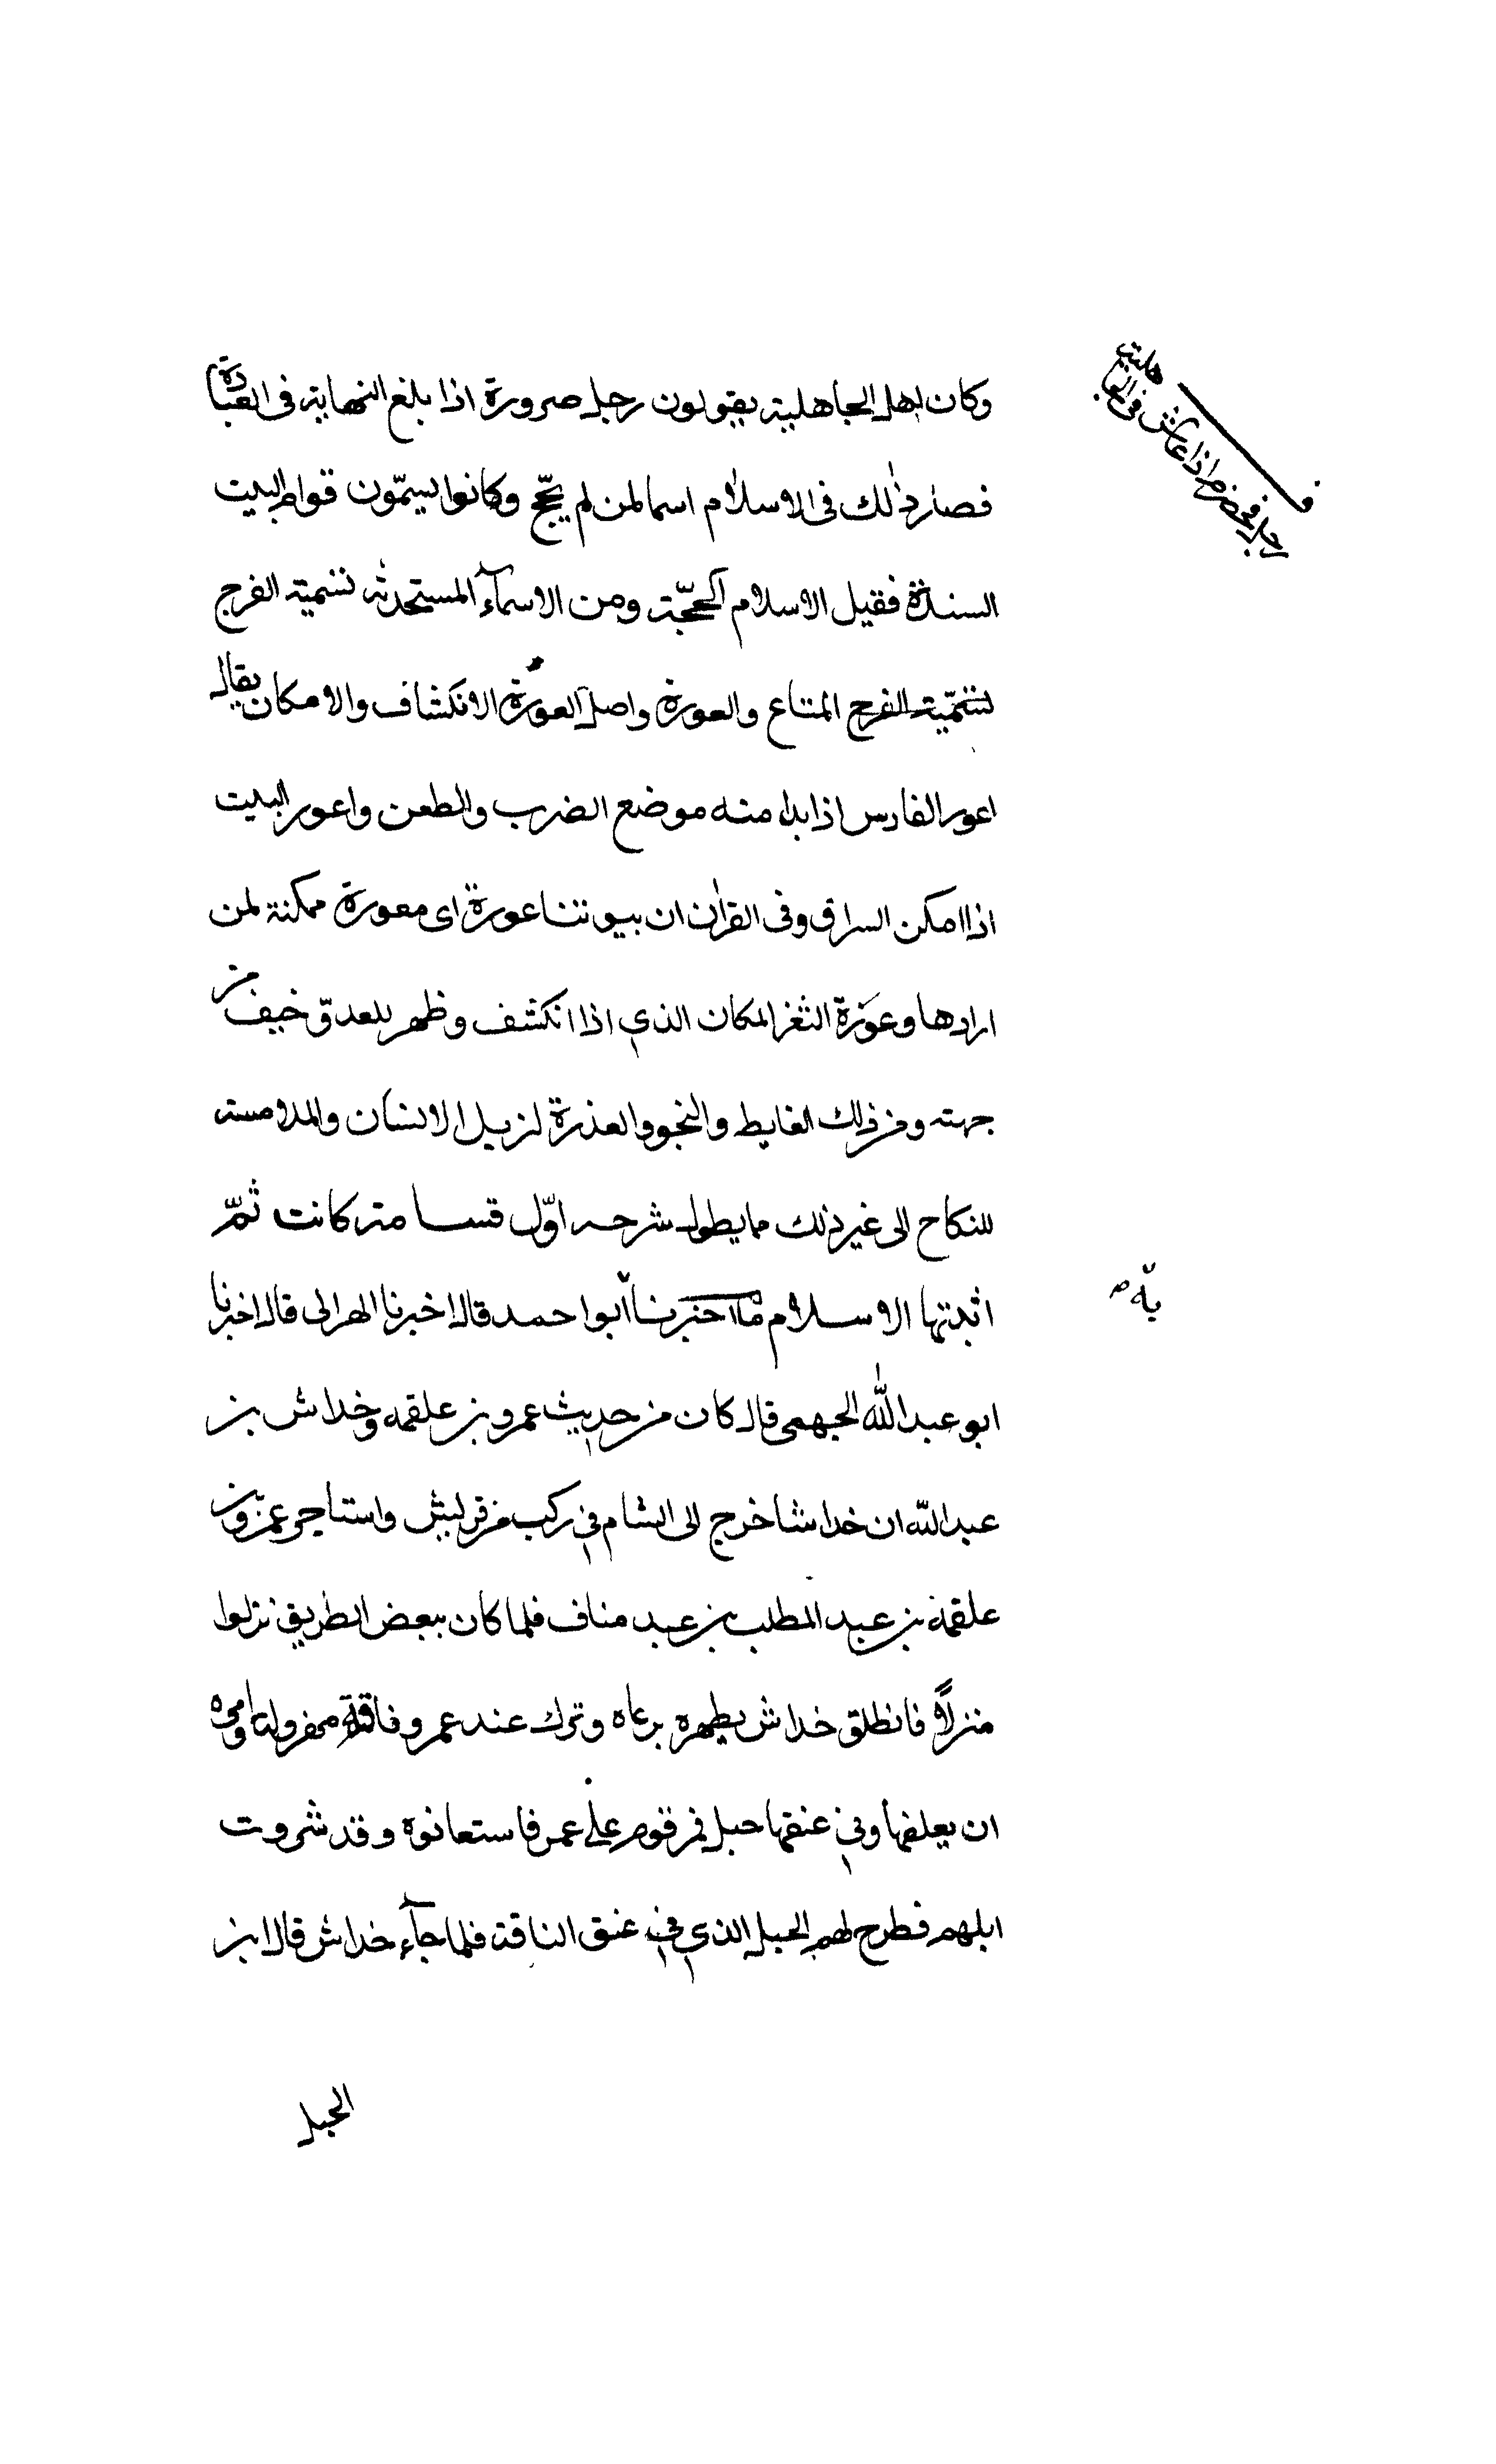 وكان اهل الجاهلية يقولون رجل صرورة اذا بلغ النهاية فى العبادة
فصار ذلك فى الاسلام اسما لمن لم يحجّ وكانوا يسمّون قوام البيت
السندة فقيل الاسلام الحجبة ومن الاسمآء المستحدثه تسمية الفرج
تسميّة الفرج المتاع والعورة واصل العورة الانكشاف والامكان يقال
اعور الفارس اذا بدا منه موضع الضرب والطعن واعور البيت
اذا امكن السراق وفى القران ان بيوتنا عورة اى معورة ممكنة لمن
ارادها وعورة الثغر المكان الذي اذا انكشف وظهر للعدوّ خيف من
جهته ومن ذلك الغايط والنجو والعذرة لزبل الانسان والملامسة
للنكاح الى غير ذلك مما يطول شرحه اوّل قسامة كانت ثمّ
اثبتتها الاسلام ما اخبرنا ابوا حمد قال اخبرنا قال اخبرنا
ابو عبد الله الجهمى قال كان من حديث عمرو بن علقمه وخداش بن
عبد الله ان خداشا خرج الى الشام في ركب من قريش واستاجر عمرو بن
علقمة بن عبد المطلب بن عبد مناف فلما كان ببعض الطريق نزلوا
منزلاً فانطلق خداش بظهره يرعاه وترك عند عمرو ناقة وامره
ان يعلفها وفي عنقها حبل فمر قوم على عمر فاستعانوه وقد شروت
ابلهم فطرح لهم الحبل الذي في عنق الناقة فلما جآء خداش قال اين
الحبل
رجل مخضرم اذا عاش فى الجا
هلية
يّه ص